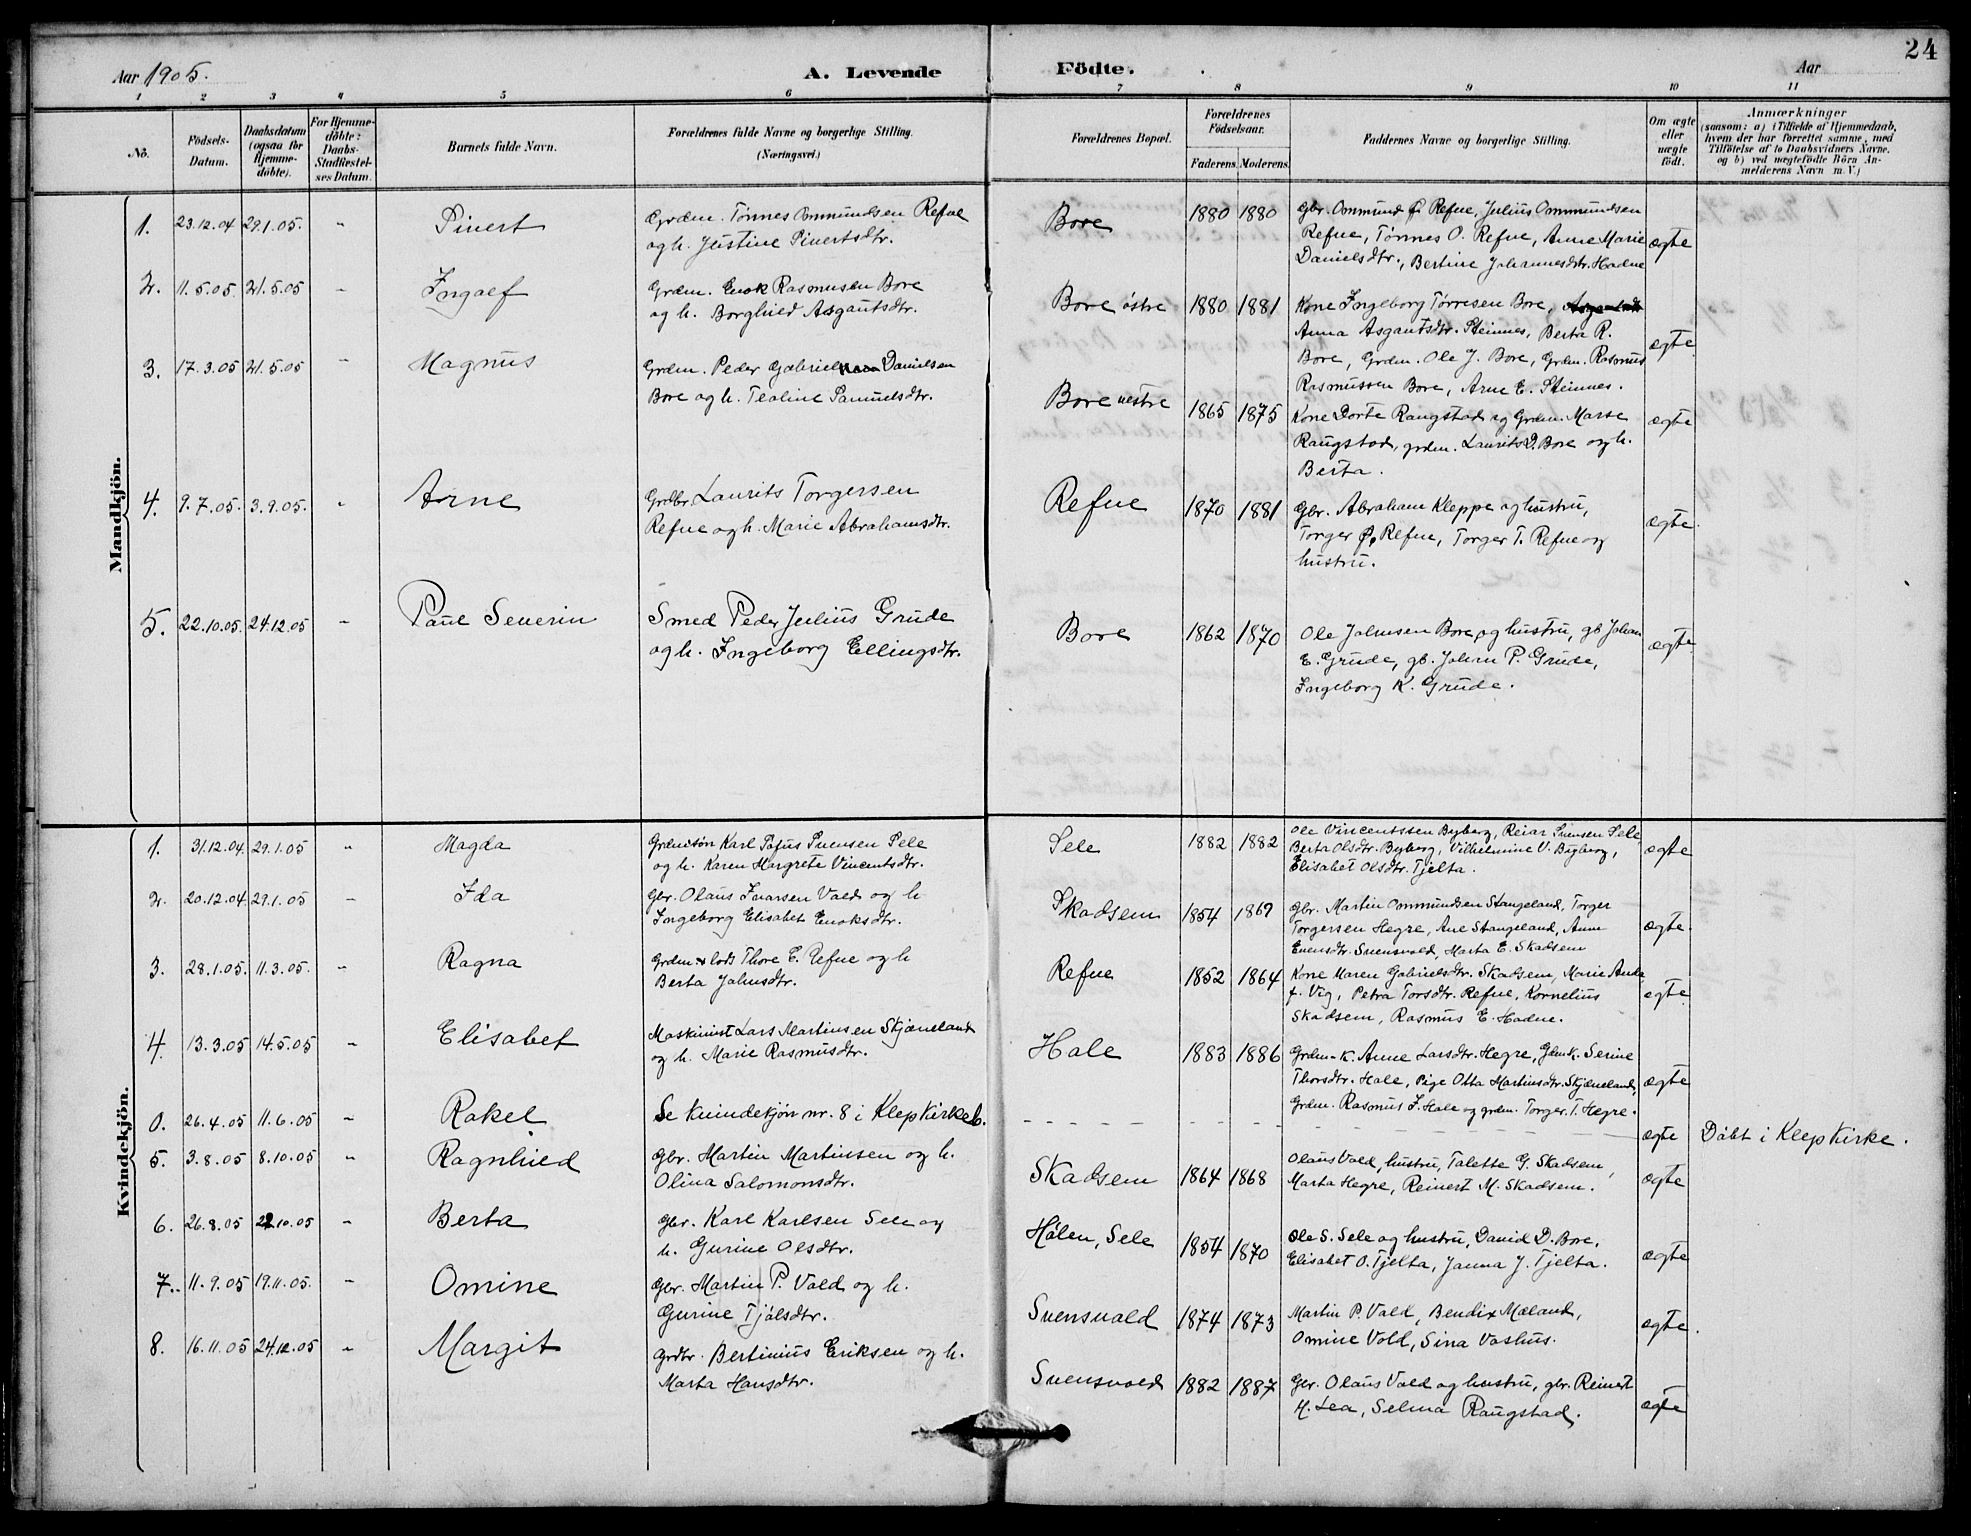 24
Aar 1905. A. Levende Födte. Aar
1 2 3 4 5 6 7 8 9 10 11
No. Födsels-Datum. Daabsdatum (ogsaa for Hjemmedöbte). For Hjemmedöbte: Daabs-Stadfæstelses Datum. Barnets fulde Navn. Forældrenes fulde Navne og borgerlige Stilling. (Næringsvei.) Forældrenes Bopæl. Forældrenes Födselsaar. Faderens. Moderens. Faddernes Navne og borgerlige Stilling. Om ægte eller uægte födt. Anmærkninger (saasom: a) i Tilfælde af Hjemmedaab, hvem der har forrettet samme, med Tilföielse af to Daabsvidners Navne, og b) ved uægtefödte Börn Anmelderens Navn m. V.)
Mandkjön.
1. 23.12.04 29.1.05. " Sivert Grdm. Tønnes Ommundsen Refve Bore 1880 1880 Gbr. Ommund Refve, Julius Ommundsen
og h. Justine Sivertsdtr. Refve, Tønnes O. Refve, Anne Marie ægte
Danielsdtr., Bertine Johannesdtr. Hodne
2. 11.5.05. 21.5.05 " Ingolf Grdm. Enok Rasmussen Bore Bore østre 1880 1881 Kone Ingeborg Tørresen Bore,
og h. Borghild Asgautsdtr. Anna Asgautsdtr. Steinnes, Berta R. ægte
Bore, Grdm. Ole J. Bore, Grdm. Rasmus
Rasmussen Bore, Arne E. Steinnes.
3. 17.3.05 21.5.05 " Magnus Grdm. Peder Gabriel Danielsen Bore vestre 1865 1875 Kone Dorte Raugstad og Grdm. Marse ægte
Bore og h. Teoline Samuelsdtr. Raugstad, grdm. Laurits D. Bore og h.
Berta.
4. 9.7.05. 3.9.05. " Arne Grdbr. Laurits Torgersen Refve 1870 1881 Gbr. Abraham Kleppe og hustru, ægte
Refve og h. Marie Abrahamsdtr. Torger Refve, Torger T. Refve og
hustru.
5. 22.10.05. 24.12.05 " Paul Severin Smed Peder Julius Grude Bore 1862 1870 Ole Johnsen Bore og hustru, gb. Johan ægte
og h. Ingeborg Ellingsdtr. E. Grude, gb. Johan P. Grude,
Ingeborg K. Grude.
Kvindekjön.
1. 31.12.04. 29.1.05 " Magda Grdmdsøn Karl Svensen Sele Sele 1882 1882 Ole Vincentssen Byberg, Reiar Svensen Sele ægte
og h. Karen Margrete Vincentsdtr. Berta Olsdtr. Byberg, Vilhelmine V. Byberg,
Elisabet Olsdtr. Tjelta.
2. 20.12.04 29.1.05 " Ida Gbr. Olaus Ivarsen Vold og h Skadsem 1854 1869 Gbr. Martin Ommundsen Stangeland, Torger ægte
Ingeborg Elisabet Enoksdtr. Torgersen Hegre, Ane Stangeland, Anne
Svensvold, Marta E. Skadsem
3. 28.1.05. 11.3.05. " Ragna Thore E. Refve og h Refve 1852 1864 Kone Maren Gabrielsdtr. Skadsem, Marie ægte
Berta Johnsdtr. f. Vig, Petra Torsdtr. Refve, Kornelius
Skadsem, Rasmus E. Hodne.
4. 13.3.05 14.5.05 " Elisabet Maskinist Lars Martinsen Skjæveland Hole 1883 1886 Grdm. k. Anne Larsdtr. Hegre, Gdmk. Serine ægte
og h. Marie Rasmusdtr. Thorsdtr. Hole, Pige Otta Martinsdtr. Skjæveland,
Grdm. Rasmus J. Hole og grdm. Torger T. Hegre.
0. 26.4.05 11.6.05 " Rakel Se kvindekjøn nr. 8 i Klep Kirkeb. - - - - - - - ægte Døbt i Klep Kirke.
5. 3.8.05 8.10.05 " Ragnhild Gbr. Martin Martinsen og h. Skadsem 1864 1868 Olaus Vold, hustru, Talette G. Skadsem, ægte
Olina Salomonsdtr. Marta Hegre, Reinert M. Skadsem.
6. 26.8.05 22.10.05 " Berta Gbr. Karl Karlsen Sele og Hølen, Sele 1854 1870 Ole S. Sele og hustru, David D. Bore, ægte
h. Gurine Olsdtr. Elisabet O. Tjelta, Janna J. Tjelta.
7. 11.9.05 19.11.05. " Omine Gbr. Martin P. Vold og h. Svensvold 1874 1873 Martin P. Vold, Bendix Mæland, ægte.
Gurine Tjølsdtr. Omine Vold, Sina Vashus.
8. 16.11.05 24.12.05 " Margit Grdbr. Bertinius Eriksen og h. Svensvold 1882 1887 Gbr. Olaus Vold og hustru, gbr. Reinert ægte
Marta Hansdtr. H. Lea, Selma Raugstad.